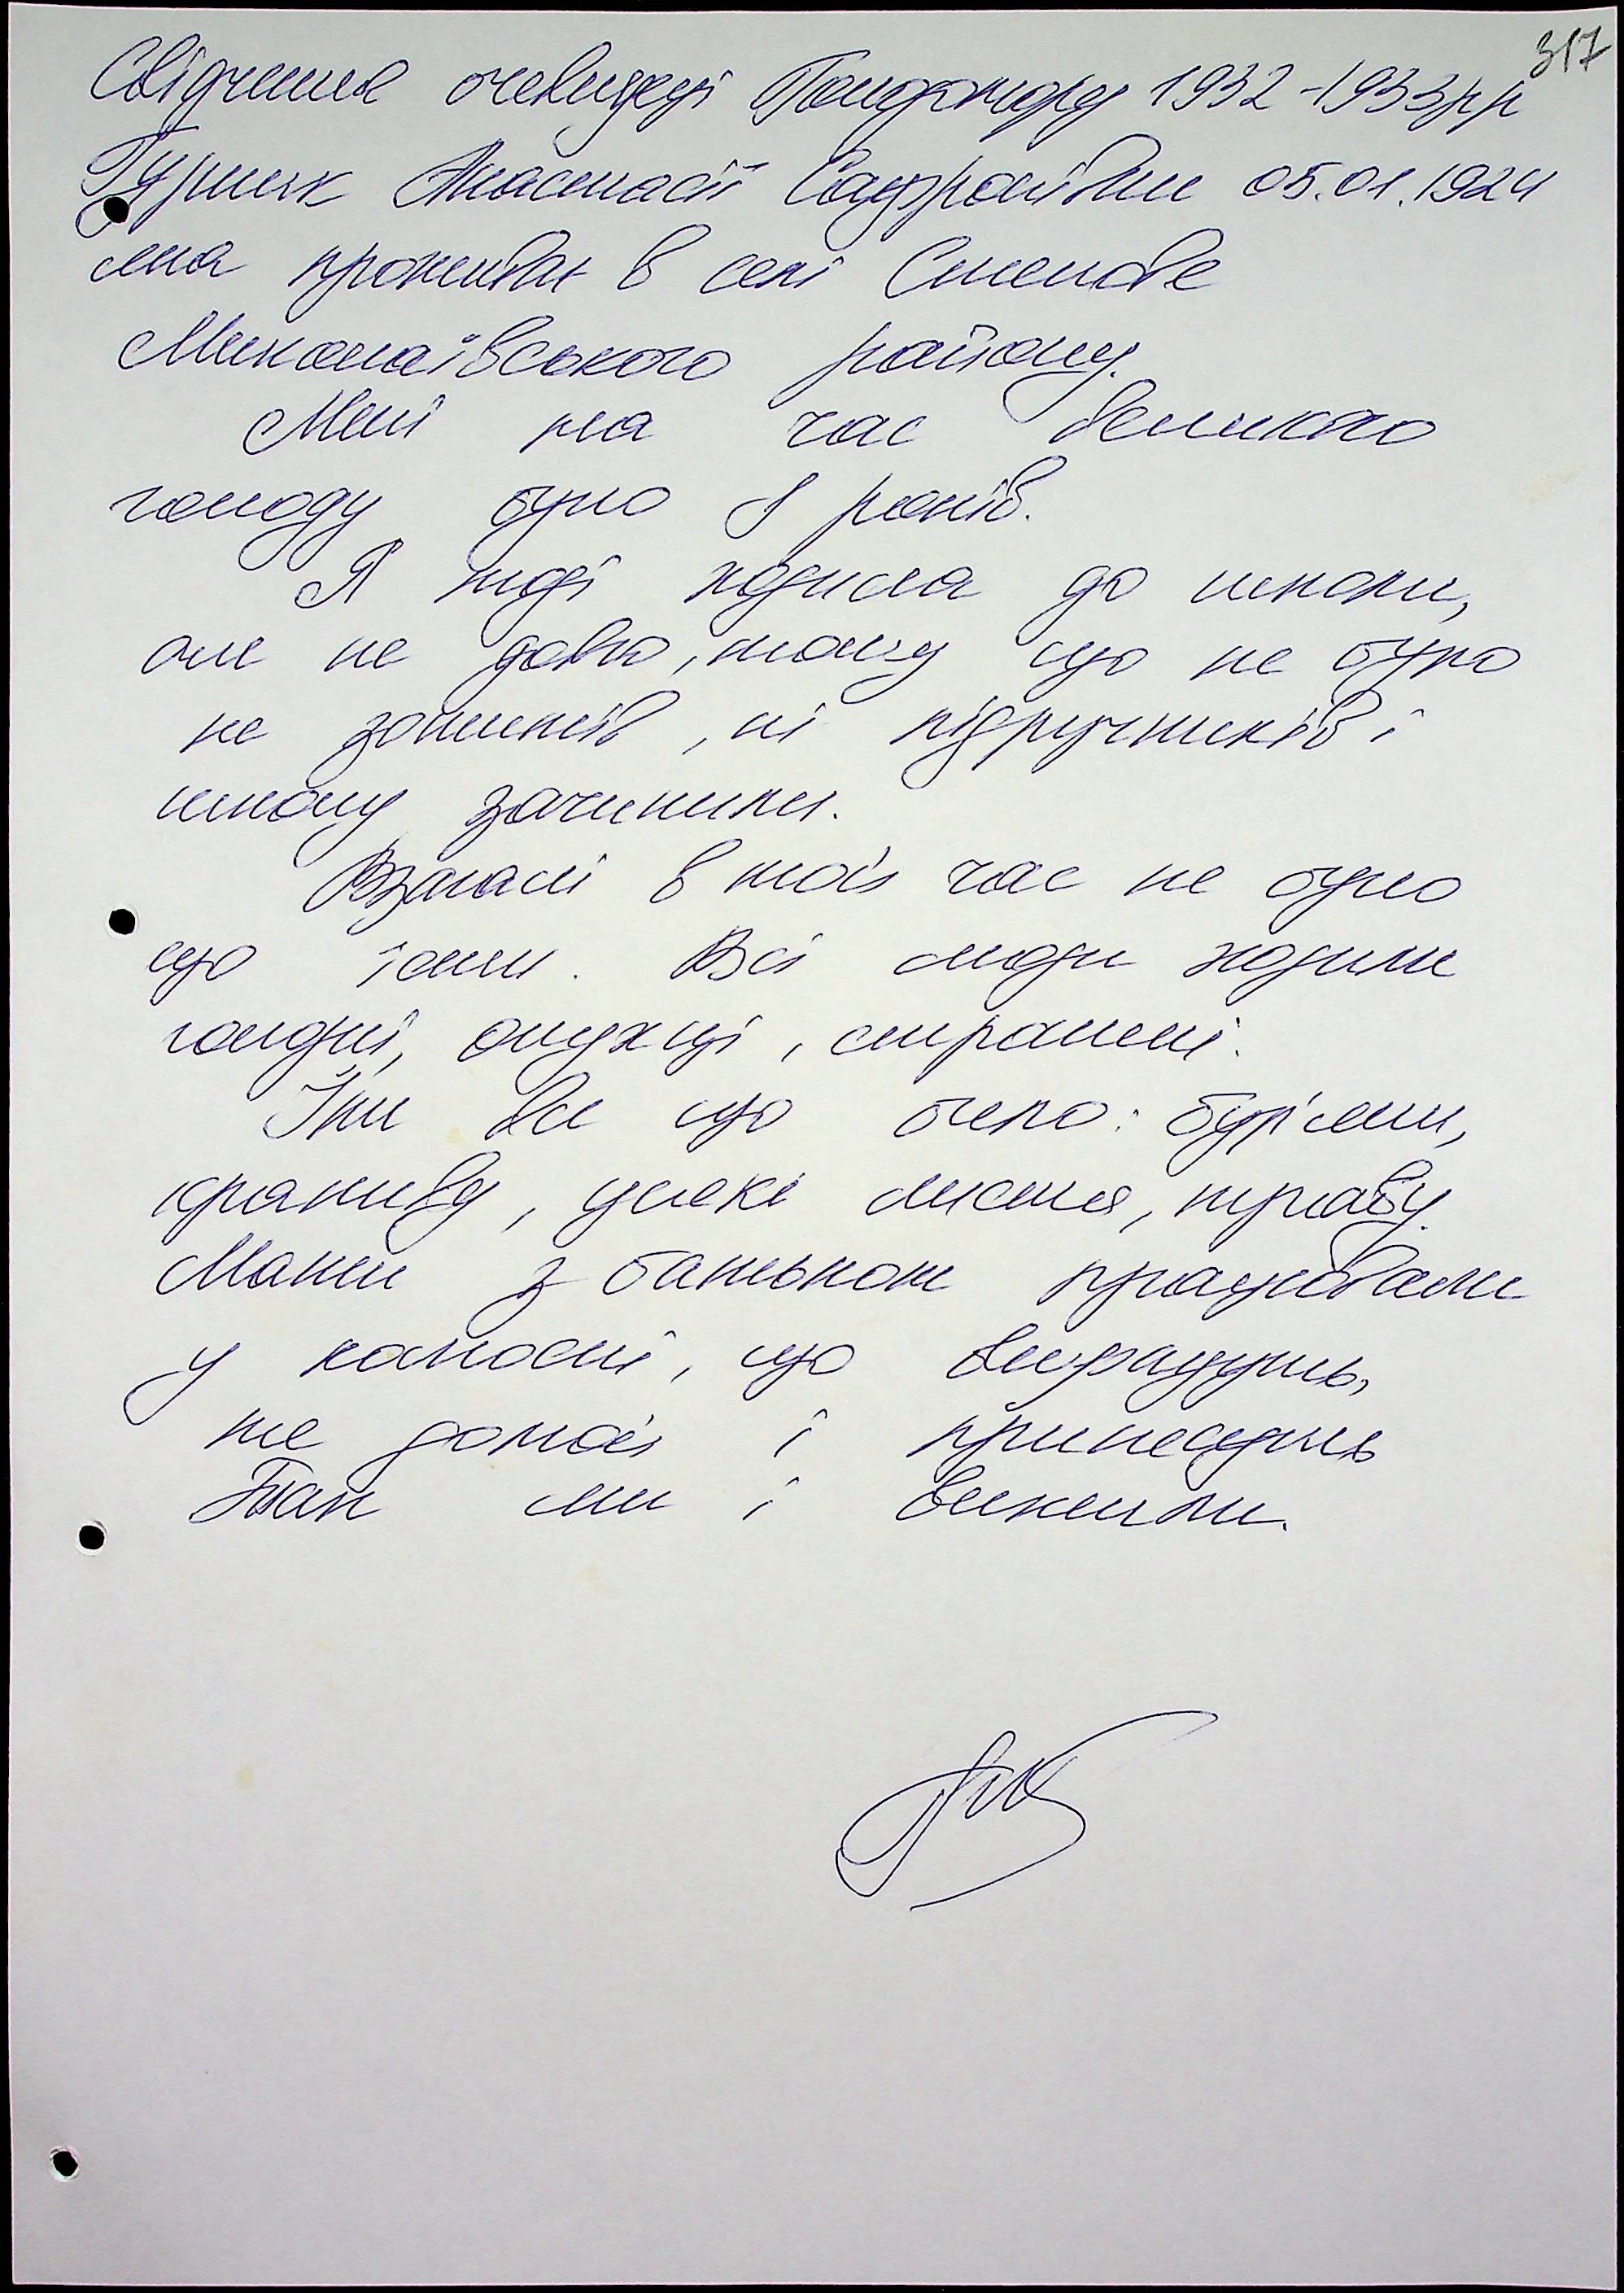 317
Свідчення очевидця Голодомору 1932-1933рр
Гурник Анастасії Сафроніївни 05.01.1924
яка проживає в селі Степове
Миколаївського району.
Мені на час великого
голоду було 8 років.
Я тоді ходила до школи,
але не довго, тому що не було
не зошитів, ні підручників і
школу зачинили.
Взагалі в той час не було
що їсти. Всі люди ходили
голодні, опухші, страшні.
Їли все що було: бур'яни,
кропиву, усяке листя, траву.
Мати з батьком працювали
у колгоспі, що вкрадуть,
те домой і принесуть
Так ми і вижили.